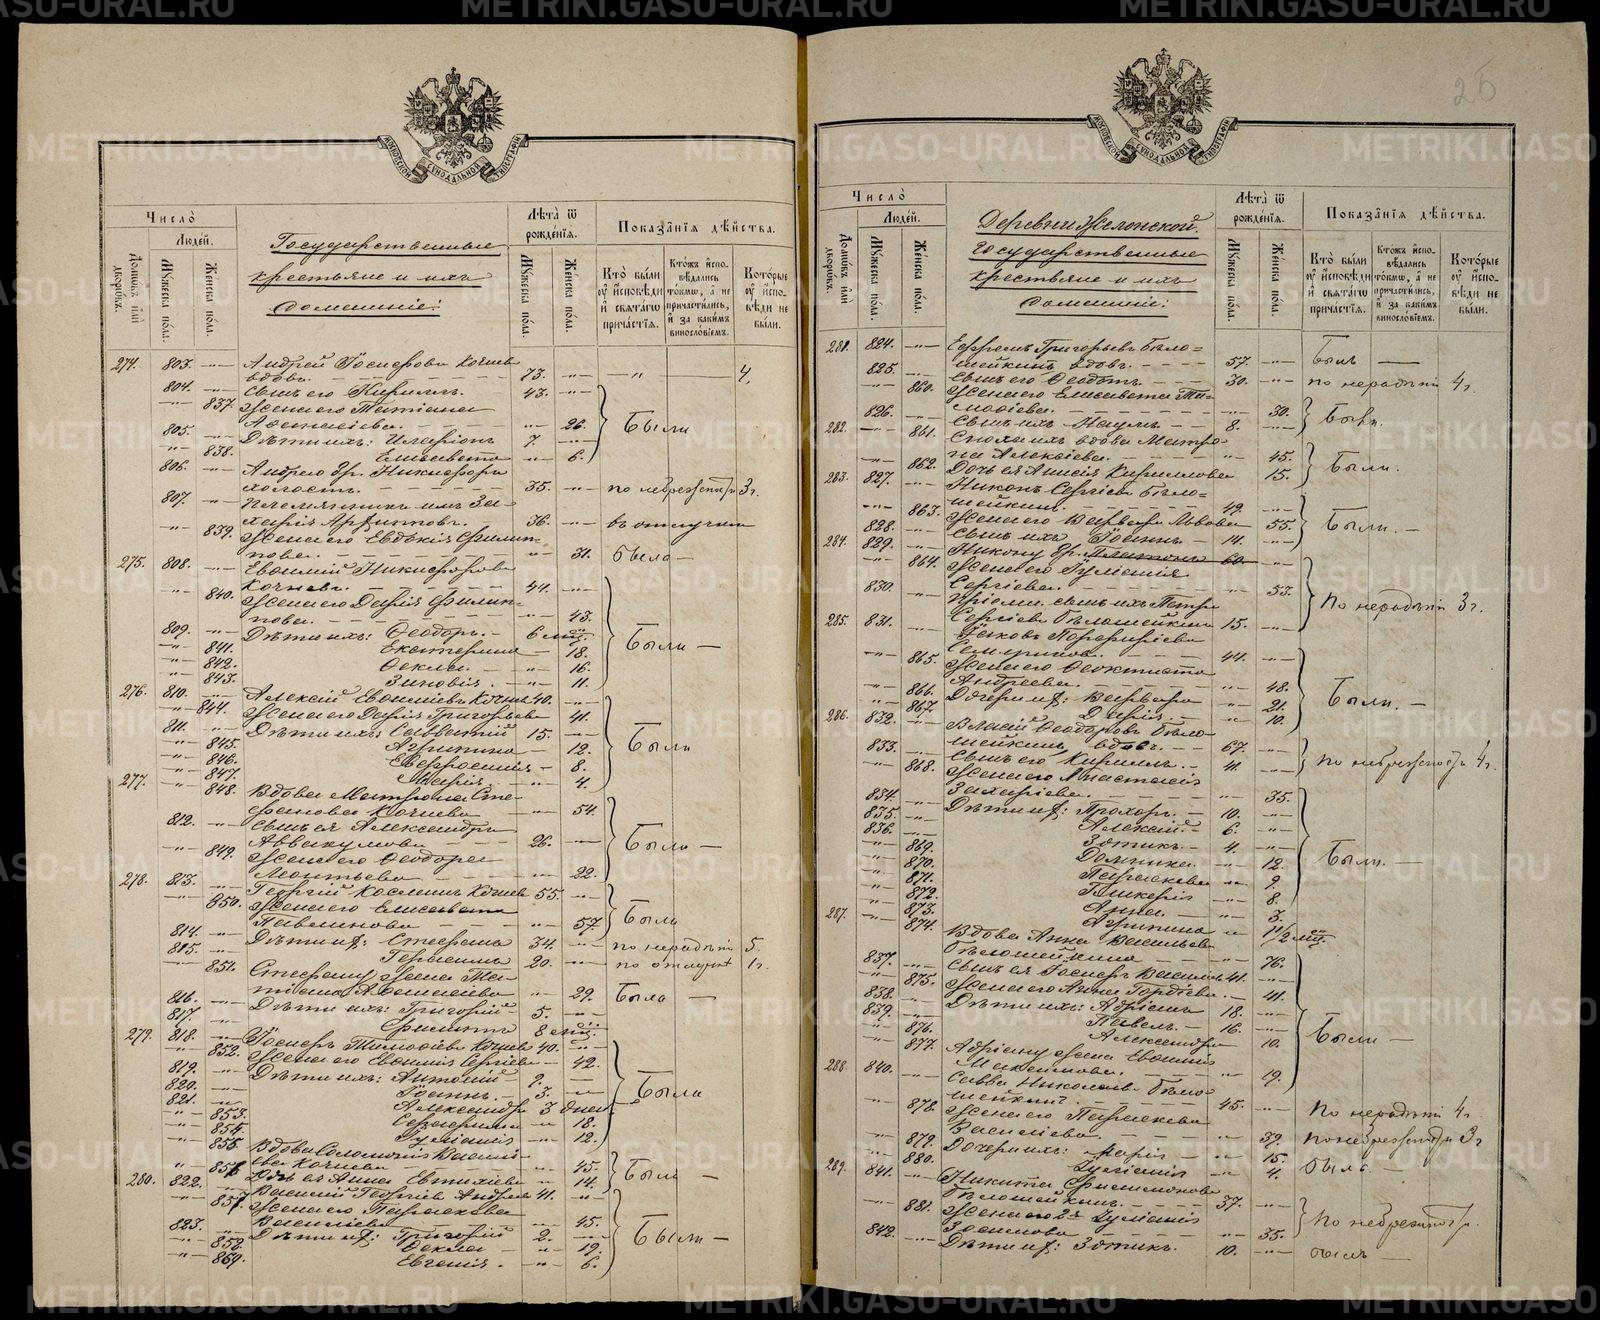 METRIKI.GASO-URAL.RU
МОСКОВСКОЙ СѴНОДАЛЬНОЙ ТИПОГРАФІИ
Число̀
Людей.
Домѡвъ и҆лѝ дворѡвъ.
Мꙋжеска по́ла.
Же́нска по́ла.
Государственные
крестьяне и ихъ
домашніе:
Лѣта̀ ѿ рожде́нїѧ.
Мꙋжеска по́ла.
Же́нска по́ла.
Показа̑нїѧ дѣ́йства.
Кто̀ бы́ли оу҆ и҆сповѣди и҆ свѧта́гѡ причастїѧ.
Кто́жъ и҆спо- вѣдались то́кмѡ, а҆ не причастились, и҆ за каки́мъ винослові́емъ.
Кото́рые оу҆ и҆спо- вѣди не бы́ли.
274. 803. Андрей Іосифовъ Кочнев
вдовъ. 73. 4.
804. Сынъ его Кириллъ. 43.
837. Жена его Татіана
Аѳанасіева. 26. Были
805. Дѣти ихъ: Иларіонъ 7.
838. Елисавета 6.
806. Андрею бр. Никифоръ
холостъ. 35. по небрежности 3 г.
807. Племянникъ имъ За-
харія Архиповъ. 36. въ отлучки
839. Жена его Евдокія Филип-
пова. 31. была
275. 808. Евѳимій Никифоровъ
Кочневъ. 44.
840. Жена его Дарія Филип-
пова. 43.
809. Дѣти ихъ: Ѳеодоръ. 6 мц.
841. Екатерина 18. Были
842. Ѳекла. 16.
843. Зиновія. 11.
276. 810. Алексій Евѳиміевъ Кочнев 40.
844. Жена его Дарія Григорьева 41.
811. Дѣти ихъ: Савватій 15.
845. Агрипина 12. Были
846. Евфросинія 8.
847. Марія 4.
277. 848. Вдова Матрона Сте-
фанова Кочнева 54.
812. Сынъ ея Александръ
Аввакумовъ 26. Были
849. Жена его Ѳеодора
Леонтьева 22.
278. 813. Георгій Космовъ Кочнев 55.
850. Жена его Елисавета
57. Были
814. Дѣти их: Стефанъ 34. по нерадѣнію 5.
815. Герасимъ 20. по отлучкѣ 1 г.
851. Стефану жена Та-
тіана Аѳанасіева 29. Была
816. Дѣти ихъ: Григорій 5.
817. Филиппъ 8 мц.
279. 818. Іосифъ Тимоѳеевъ Кочнев 40.
852. Жена его Евѳимія Сергіева 42.
819. Дѣти ихъ: Антоній 9.
820. Іоаннъ. 3. Были
821. Александръ 3 дней
853. 18.
854. Іуліанія 12.
855. Вдова Соломонія Василі-
ева Кочнева 45. Были
856. Дочь ея Анна 14.
280. 822. Василій Георгіевъ 41.
857. Жена его Параскева
Васильева 45.
823. Дѣти их: Григорій 2. Были
858. Ѳекла 19.
859. Евгенія. 6.
26
МОСКОВСКОЙ СѴНОДАЛЬНОЙ ТИПОГРАФІИ
Число̀
Людей.
Домѡвъ и҆лѝ дворѡвъ.
Мꙋжеска по́ла.
Же́нска по́ла.
Деревни Жилонской
государственные
крестьяне и ихъ
домашніе:
Лѣта̀ ѿ рожде́нїѧ.
Мꙋжеска по́ла.
Же́нска по́ла.
Показа̑нїѧ дѣ́йства.
Кто̀ бы́ли оу҆ и҆сповѣди и҆ свѧта́гѡ причастїѧ.
Кто́жъ и҆спо- вѣдались то́кмѡ, а҆ не причастились, и҆ за каки́мъ винослові́емъ.
Кото́рые оу҆ и҆спо- вѣди не бы́ли.
281. 824. Ефремъ Григорьевъ Бѣло-
шейкинъ вдовъ. 57. Былъ
825. Сынъ его Ѳеодотъ 30. по нерадѣнію 4 г.
860. Жена его Елисавета Ти-
моѳіева. 30. Были.
826. Сынъ ихъ Наумъ 8.
282. 861. Сноха ихъ вдова Матро-
на Алексіева. 45. Были.
862. Дочь ея Анисія Кириллова 15.
283. 827. Никонъ Сергіевъ Бѣло-
шейкинъ. 49.
863. Жена его Варвара Львова 55. Были.
828. Сынъ ихъ Іоаннъ 14.
284. 829. Никону бр. Платонъ 60.
864. Жена его Іуліанія
Сергіева. 53. По нерадѣнію 3 г.
830. Пріемн. сынъ ихъ Петръ
Сергіевъ Бѣлошейкинъ 15.
285. 831. Іаковъ Порфиріевъ
44.
865. Жена его Ѳеоктиста
Андреева. 48. Были.
866. Дочери их: Варвара 21.
867. Дарія. 10.
286. 832. Власій Ѳеодоровъ Бѣло-
шейкинъ вдовъ. 67. По небрежности 4 г.
833. Сынъ его Кириллъ. 41.
868. Жена его Анастасія
Захаріева. 35.
834. Дѣти их: Прохоръ. 10.
835. Алексій 6.
836. Зотикъ. 4.
869. Домника. 12. Были.
870. Параскева 9.
871. Гликерія 8.
872. Анна. 3.
873. Агрипина 1 1/2 мц.
287. 874. Вдова Анна Васильева
Бѣлошейкина 76.
837. Сынъ ея Іосифъ Васильевъ 41.
875. Жена его Анна Гордіева. 41.
838. Дѣти ихъ: Адріанъ 18.
839. Павелъ. 16. Были
876. Александра 10.
877. Адріану жена Евѳимія
Максимова. 19.
288. 840. Савва Николаевъ Бѣло-
шейкинъ. 45. По нерадѣнію 4 г.
878. Жена его Параскева
Васильева. 39. По небрежности 3 г.
879. Дочери ихъ: Марія 15. была
880. Іуліанія 4.
289. 841. Никита Филимоновъ
Бѣлошейкинъ. 37.
881. Жена его 2я Іуліанія
Зотикова 35. По небрежности.
842. Дѣти их: Зотикъ. 10. былъ